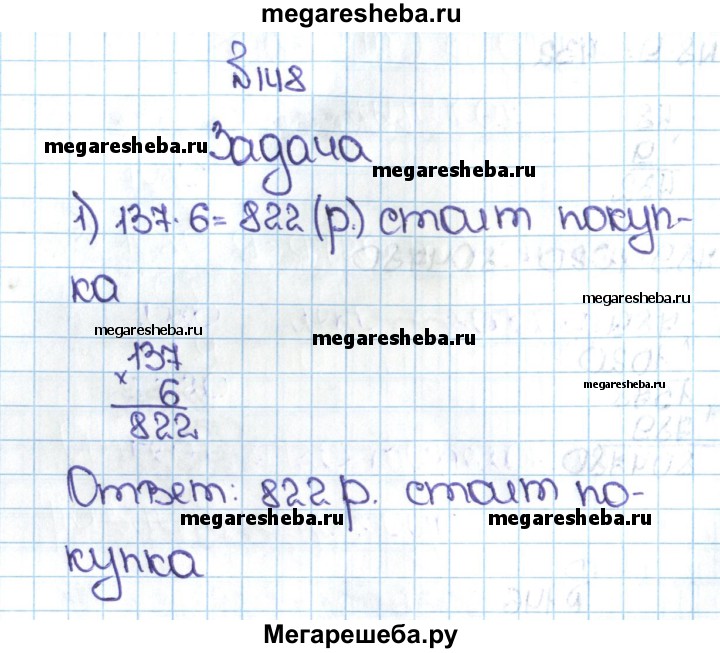 megaresheba.ru
№148
megaresheba.ru Задача
megaresheba.ru
1) 137·6=822(р.) стоит покуп-
ка
megaresheba.ru
megaresheba.ru
megaresheba.ru
137
× 6
megaresheba.ru
822
Ответ: 822р. стоит по-
megaresheba.ru megaresheba.ru
купка
Мегарешеба.ру